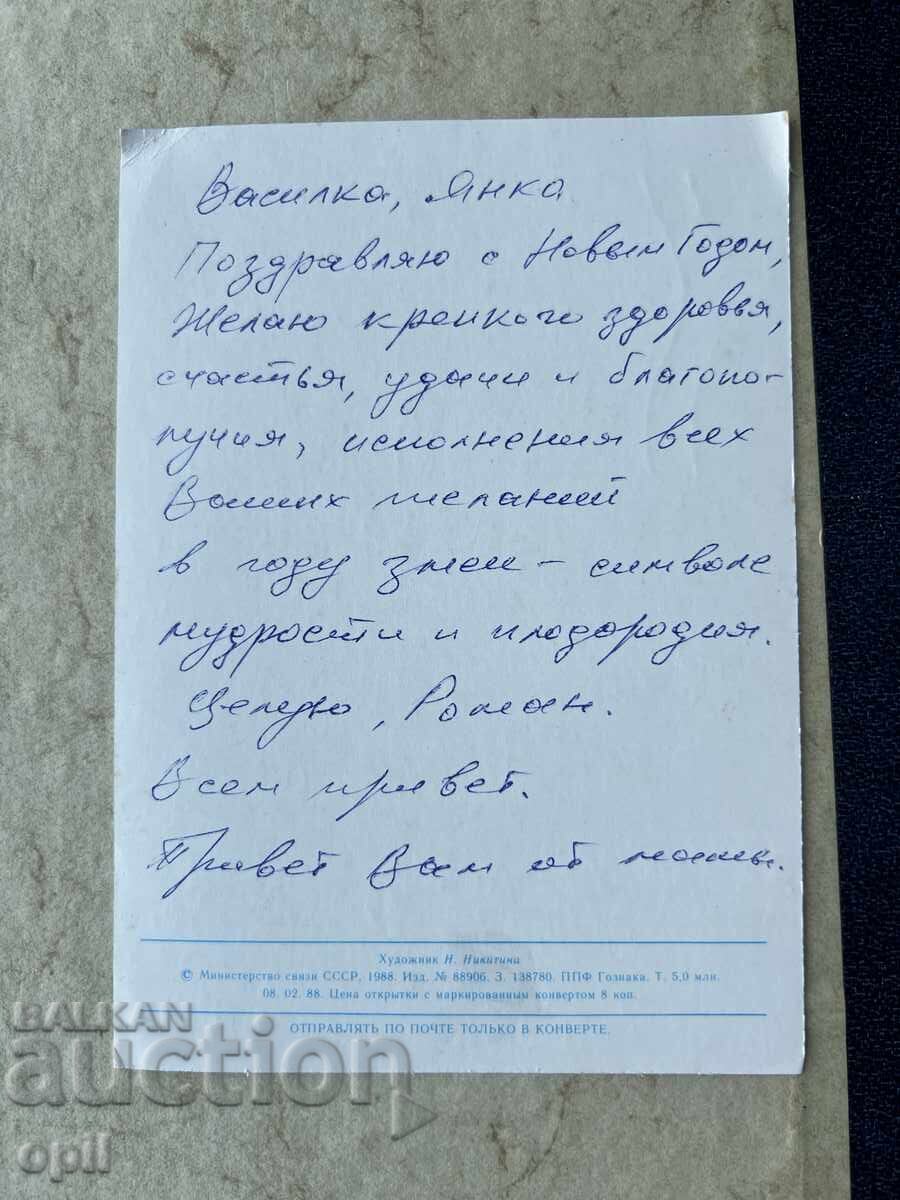 Василка, Янка
Поздравляю с Новым Годом,
Желаю крепкого здоровья,
счастья, удачи и благопо-
лучия, исполнения всех
Ваших желаний
в году змеи – символе
мудрости и плодородия.
Целую, Роман.
Всем привет.
Привет Вам от мамы.
Художник Н. Никитина
© Министерство связи СССР, 1988. Изд. № 88906. З. 138780. ППФ Гознака. Т. 5,0 млн.
08. 02. 88. Цена открытки с маркированным конвертом 8 коп.
ОТПРАВЛЯТЬ ПО ПОЧТЕ ТОЛЬКО В КОНВЕРТЕ.
BALKAN
auction
opil